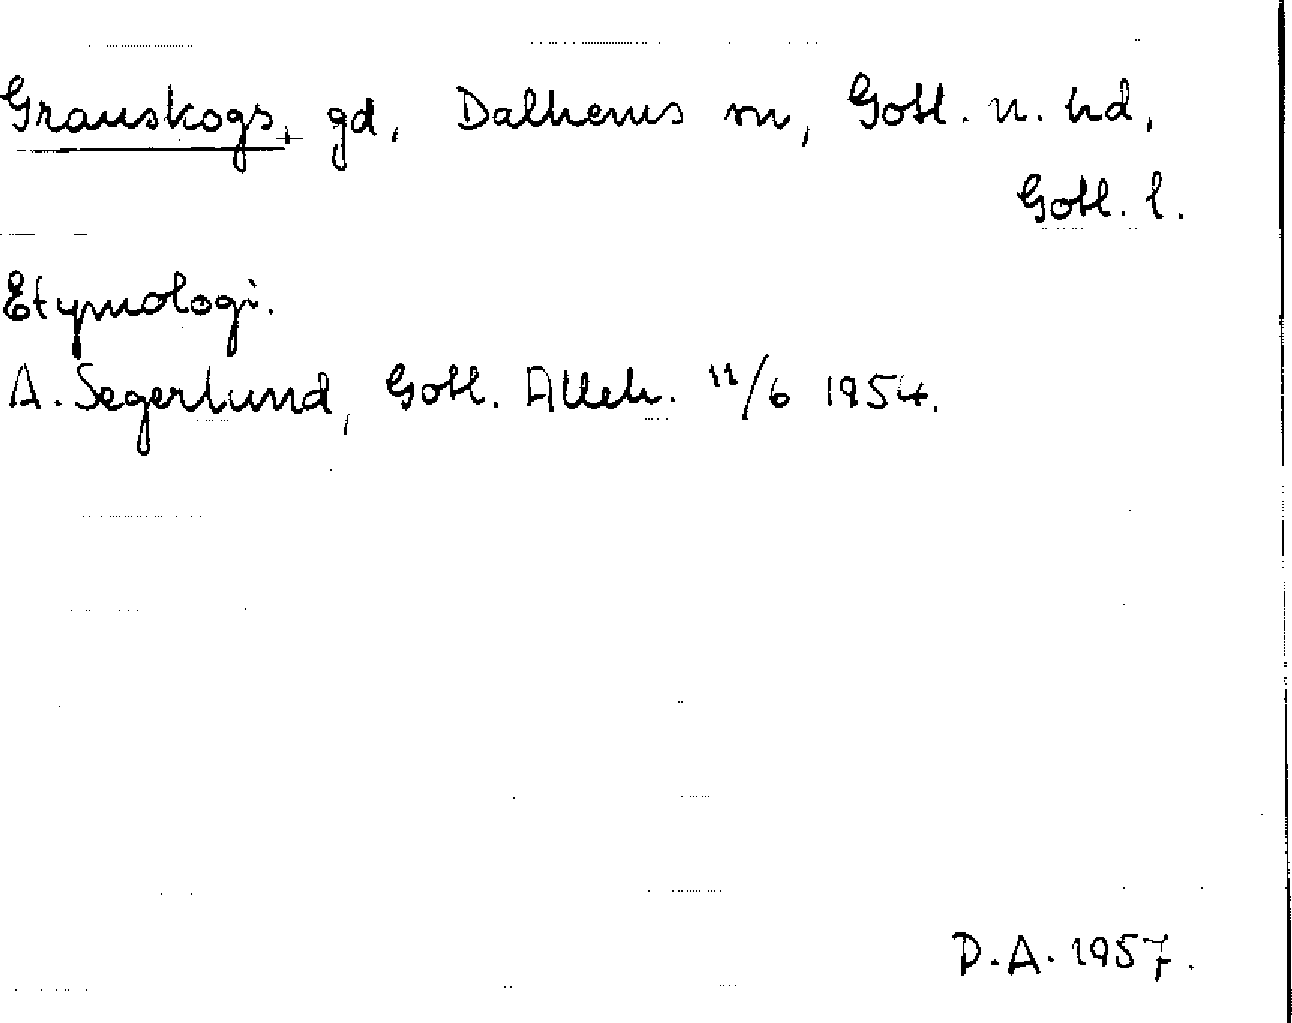 Granskogs, gd, Dalhems sn, Gotl. n. hd,
Gotl. l.
Etymologi.
A. Segerlund, Gotl. Alleh. 11/6 1954.
D.A. 1957.